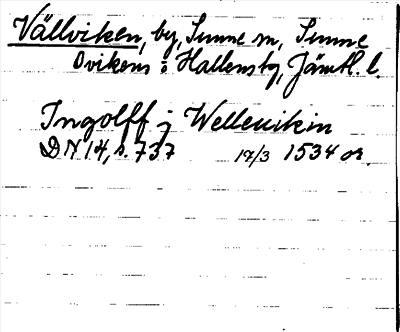 Vällviken, by, Sunne sn, Sunne
Ovikens o Hallens tg, Jämtl. l.
Ingolff j Welleuikin
DN 14, s. 737 17/3 1534 or.